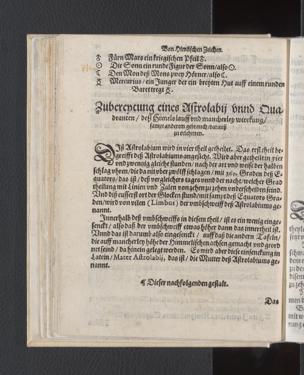 Von Himlischen Zeichen.
♂ Fürn Mars ein kriegischen Pfeil ♂.
☉ Die Sonn ein runde Figur der Sonn / also ☉.
☾ Den Mon deß Mons zwey Hörner / also ☾.
☿ Mercurius / ein Junger der ein breyten Hut auff einem runden
Barett tregt ☿.
Zubereytung eines Astrolabij vnnd Qua-
dranten / deß Himels lauff vnd mancherley wirckung /
sampt anderm gebrauch darauß
zu erlehrnen.
Diß Astrolabium wird in vier theil getheilet. Das erst theil be-
greifft deß Astrolabiums angesicht. Wird aber getheilt in vier
vnd zwentzig gleiche stunden / nach der art vnd weiß der halben
schlag vhren / die da mit der zal
theilung mit Linien vnd Zalen von zehen zu zehen vnderscheiden seind.
Vnd diß eusserst ort der Glocken stund mit sampt deß Equators Gra-
den / wird von vilen (Limbus) der vmbschweiff deß Astrolabiums ge-
nannt.
Innerhalb deß vmbschweiffs in diesem theil / ist es ein wenig einge-
senckt / also daß der vmbschweiff etwas höher dann das innertheil ist.
Vnnd das ist darumb also eingesenckt / auff daß die andern Tafeln /
die auff mancherley höhe der Himmelischen achsen gemacht vnd geord-
net seind / da hinein gelegt werden. Es wird aber diese einsenckung in
Latein / Mater Astrolabij, das ist / die Mutter deß Astrolabiums ge-
nannt.
¶ Dieser nachfolgenden gestalt.
Das